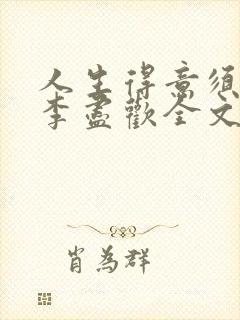 人生得意须
李盡歡全文
肖為群